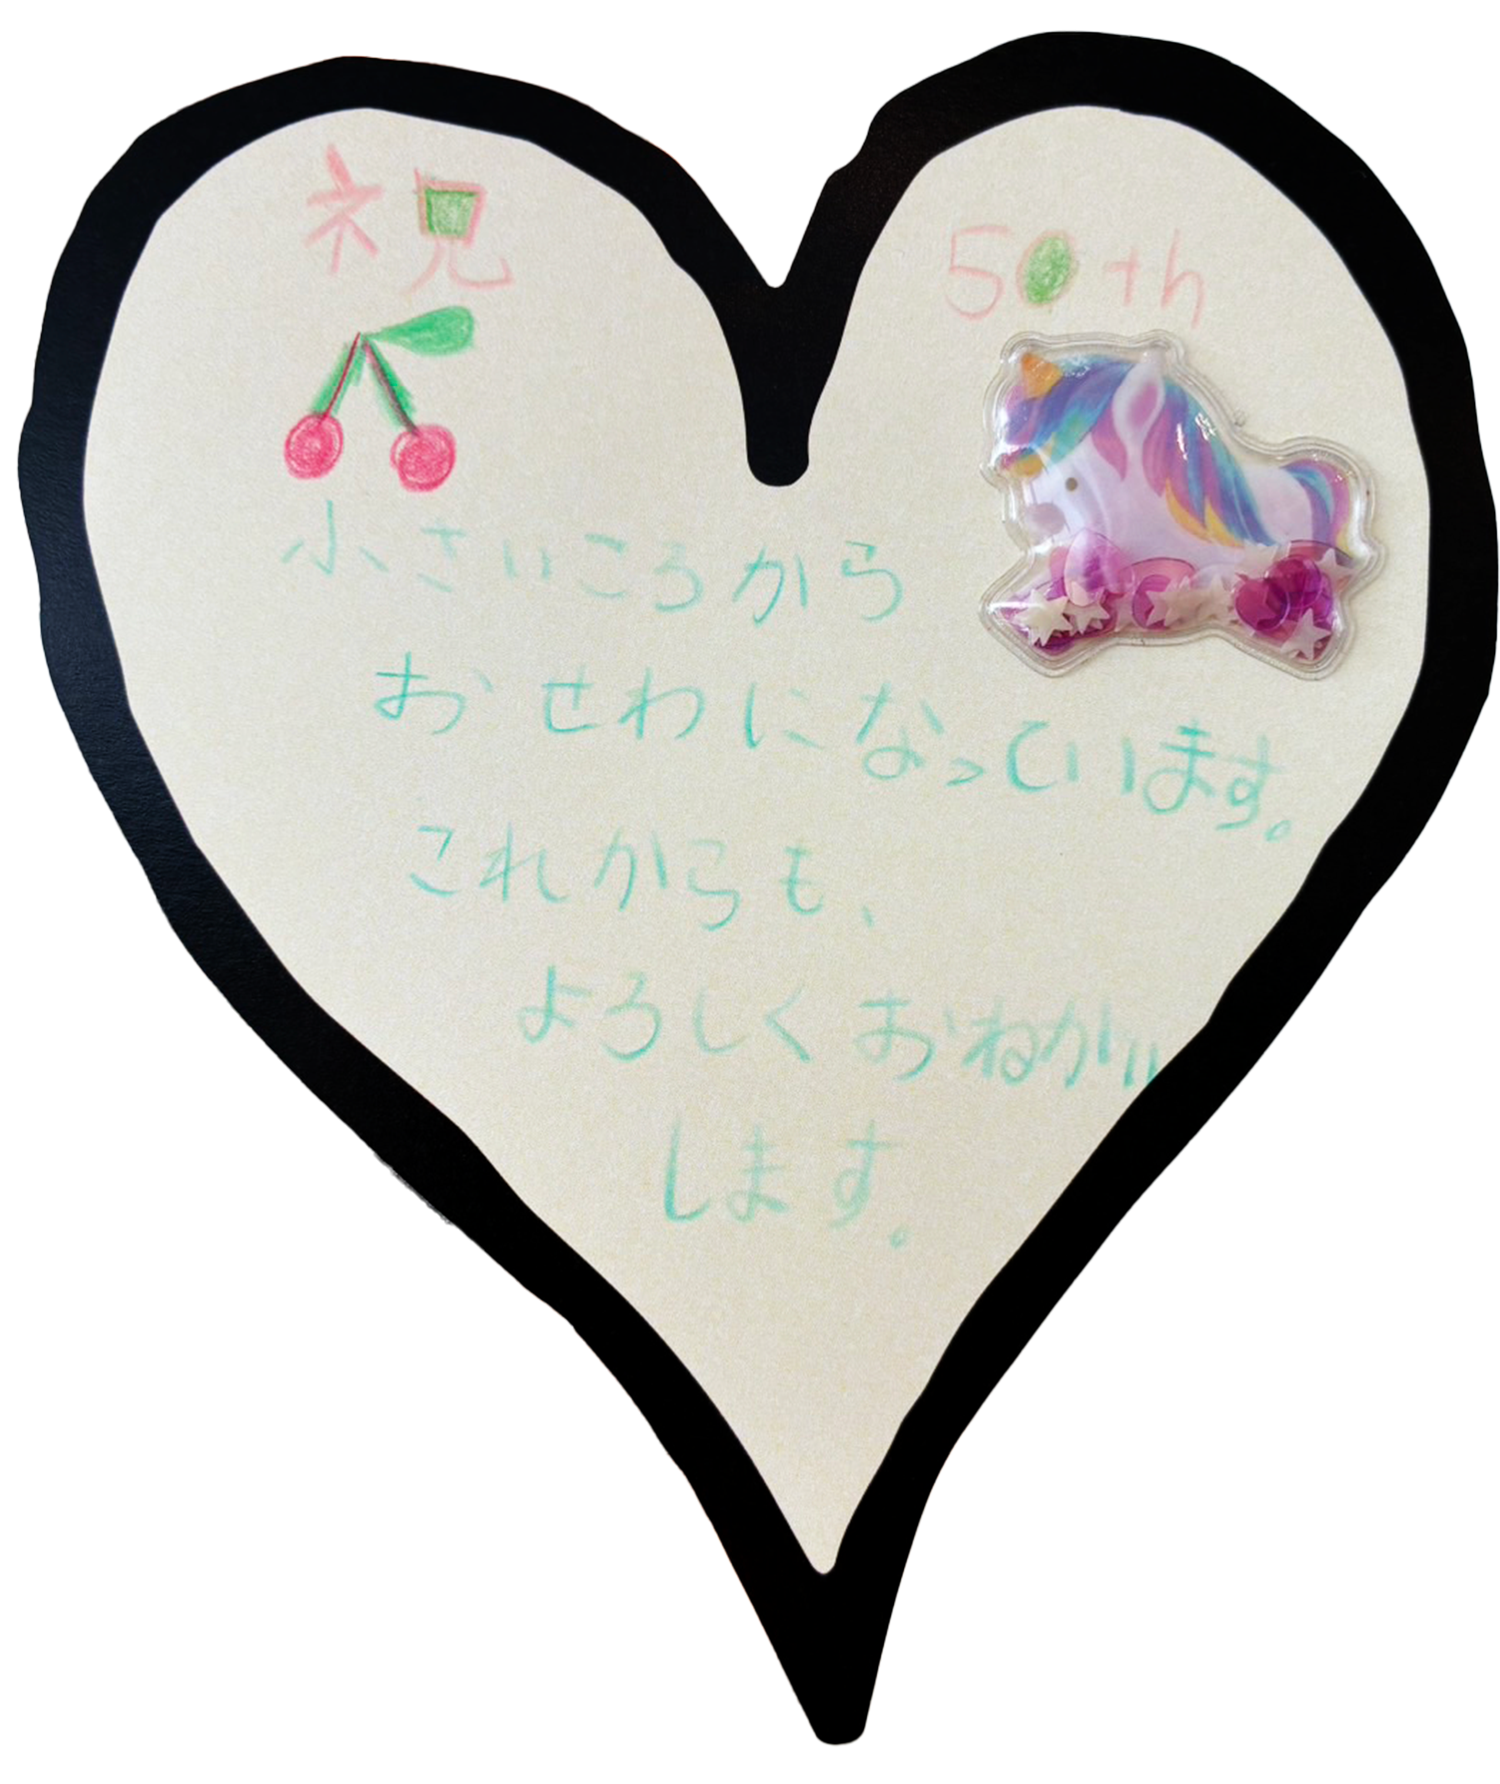 祝
50th
小さいころから
おせわになっています。
これからも、
よろしくおねがい
します。